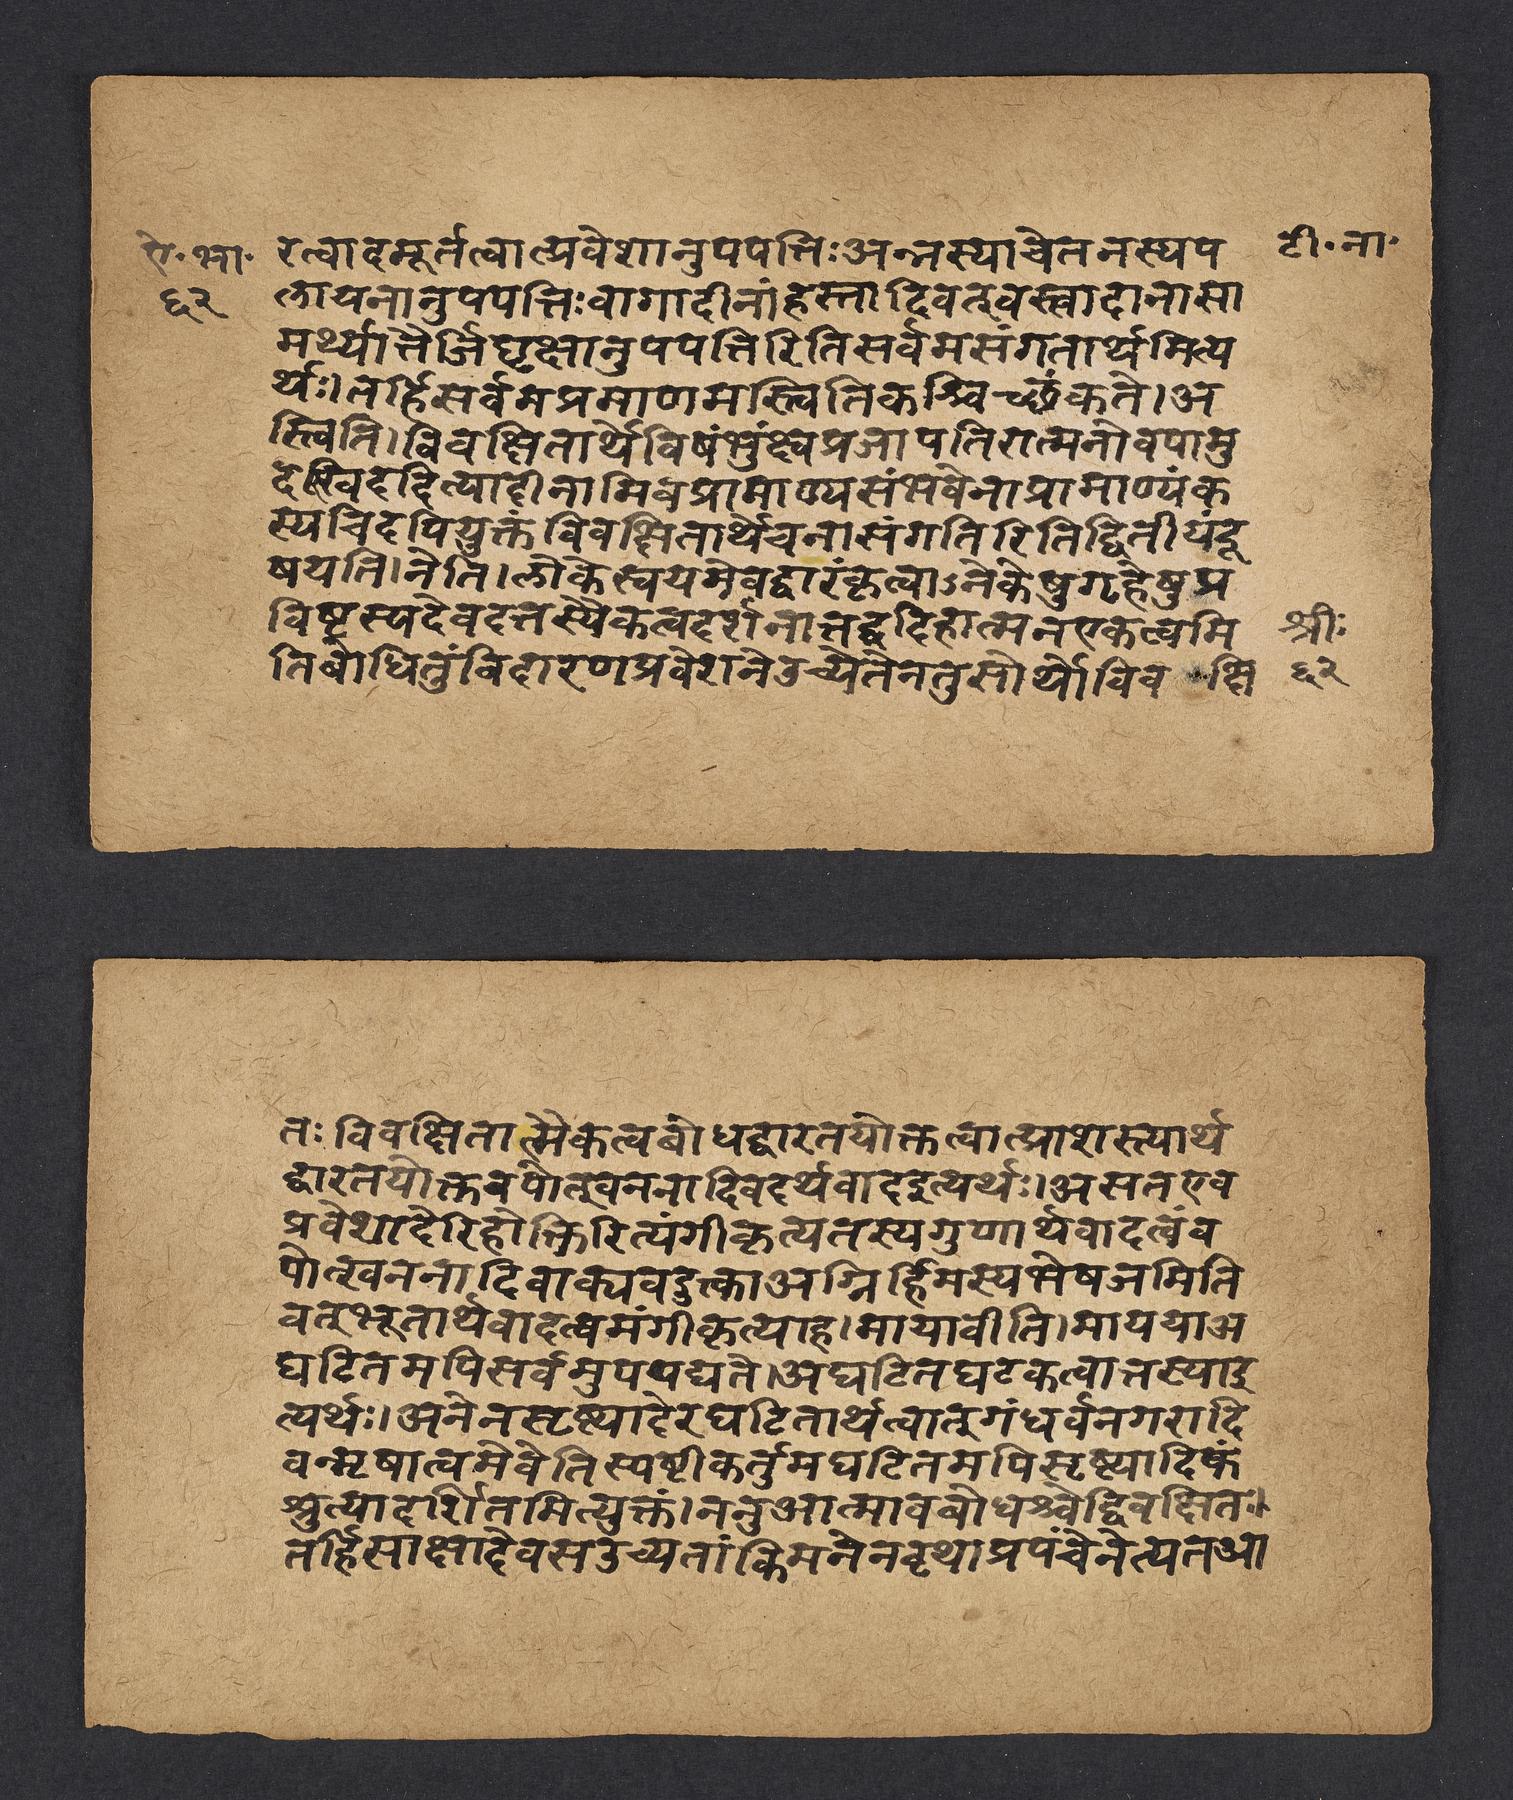 ऐ·भा·
६२
टी·ना·
रत्वादमूर्तत्वात्प्रवेशानुपपत्तिःअन्नस्याचेतनस्यप
लायनानुपपत्तिःवागादीनांहस्तादिवत्स्वस्वादानासा
मर्थ्यात्तैर्जिघृक्षानुपपत्तिरितिसर्वमसंगतार्थमित्य
र्थः।तर्हिसर्वमप्रमाणमस्त्वितिकश्चिच्छंकते।अ
स्त्विति।विवक्षितार्थेविषंभुंक्ष्वप्रजापतिरात्मनोवपामु
देखिदहदित्यादीनामिवप्रामाण्यसंभवेनाप्रामाण्यंक
स्यचिदपियुक्तंविवक्षितार्थेचनासंगतिरितिद्वितीयंदू
षयति।नेति।लोकेस्वयमेवद्वारंकृत्वाऽनेकेषुगृहेषुप्र
विष्टस्यदेवदत्तस्यैकत्वदर्शनात्तद्वदिहात्मनएकत्वमि
तिबोधितुंविदारणप्रवेशनेउच्येतेनतुसोर्थोविव क्षि
श्रीः
६२
तः विवक्षितात्मैकत्वबोधद्वारतयोक्तत्वात्प्राशस्त्यार्थ
द्वारतयोक्तवपोत्खननादिवदर्थवादइत्यर्थः।असतएव
प्रवेशादेरिहोक्तिरित्यंगीकृत्यतस्यगुणार्थवादत्वंव
पोत्खननादिवाक्यवदुक्त्काअग्निर्हिमस्यभेषजमिति
वत्भूतार्थवादत्वमंगीकृत्याह।मायावीति।माययाअ
घटितमपिसर्वमुपपद्यते।अघटितघटकत्वात्तस्याइ
त्यर्थः।अनेनसृष्ट्यादेरघटितार्थत्वात्गंधर्वनगरादि
वन्मृषात्वमेवेतिस्पष्टीकर्तुमघटितमपिसृष्ट्यादिकं
श्रुत्यादर्शितमित्युक्तं।ननुआत्मावबोधश्चेद्विवक्षितः।
तर्हिसाक्षादेवसउच्यतांकिमनेनवृथाप्रपंचेनेत्यतआ